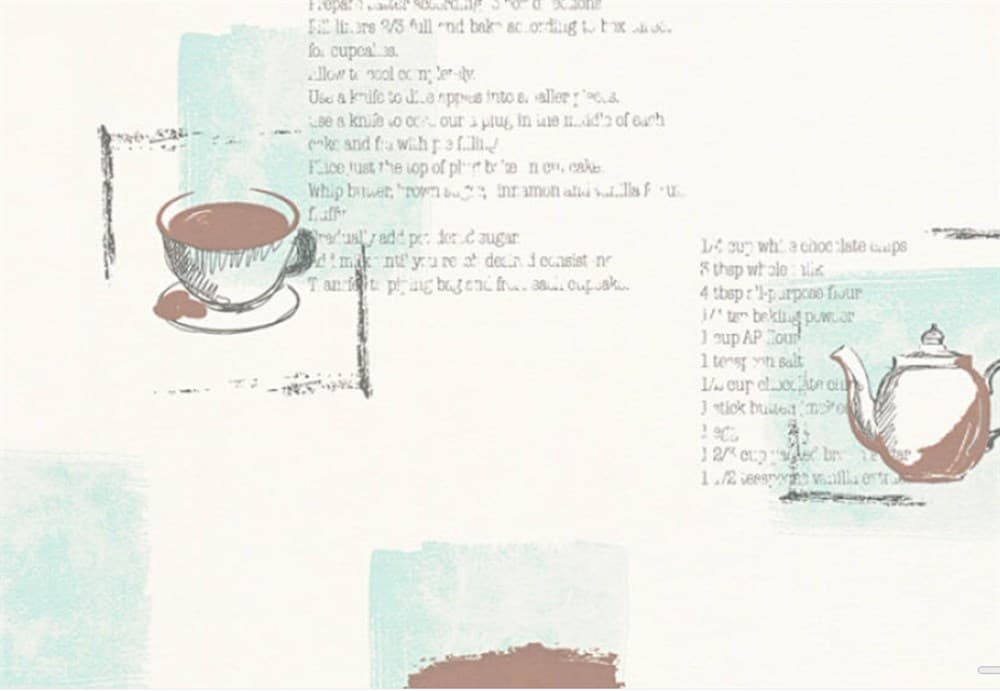 Fill liners 2/3 full and bake according to box
for cupcakes.
Allow to cool completely.
Use a knife to dice apples into smaller pieces.
Use a knife to core our a plug in the middle of each
cake and fill with pie filling
Place just the top of plug back on cupcake.
Whip butter, brown sugar, cinnamon and vanilla
fluffy
Gradually add powdered sugar
Add milk until you reach desired
Transfer to piping bag and frost each cupcake.
1/4 cup white chocolate chips
3 tbsp whole milk
4 tbsp all-purpose flour
tsp baking powder
1 cup AP flour
1 teaspoon salt
cup chocolate chips
1 stick butter
1 egg
1 2/3 cup packed brown
1 1/2 teaspoons vanilla extract